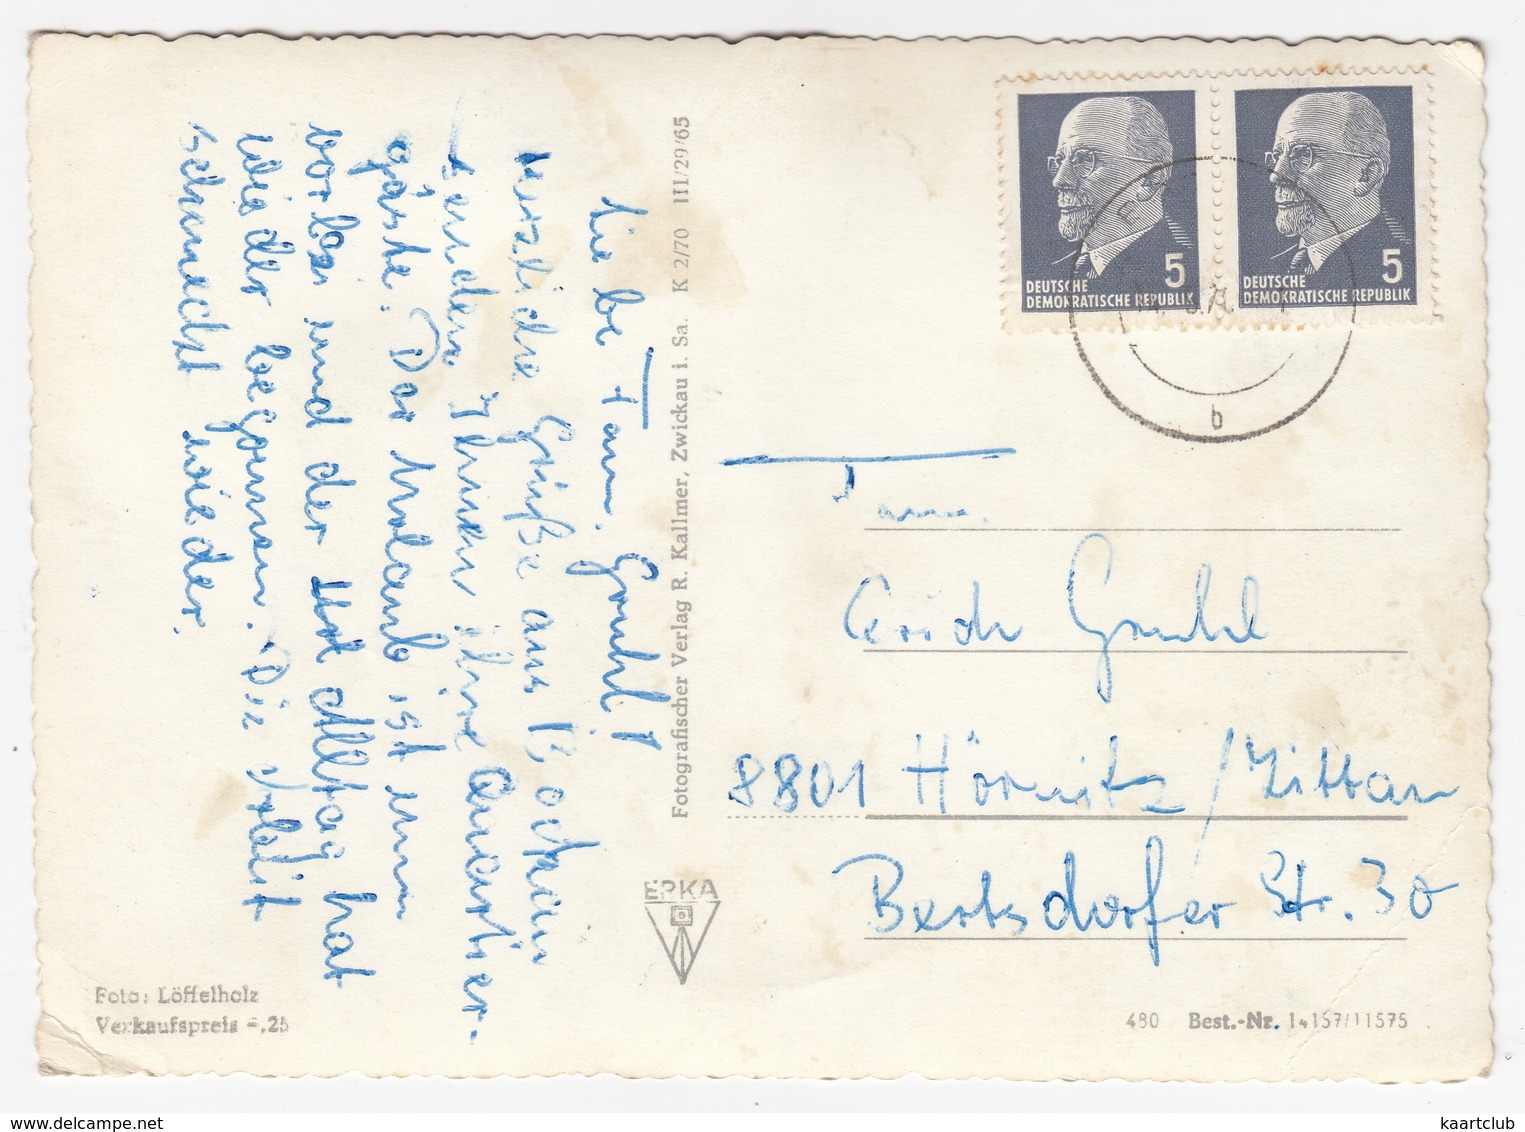 Liebe Fam. Gruhl!
Herzliche Grüße aus
senden Ihnen ihre Quartier-
gäste. Der Urlaub ist nun
vorbei und der Alltag hat
wieder begonnen. Die Arbeit
schmeckt wieder.
Fotografischer Verlag R. Kallmer, Zwickau i. Sa. K 2/70 III/29/65
ERKA
Foto: Löffelholz
Verkaufspreis -,25
5
DEUTSCHE
DEMOKRATISCHE REPUBLIK
5
DEUTSCHE
DEMOKRATISCHE REPUBLIK
b
Fam.
Erich Gruhl
8801 Hörnitz/Zittau
Bertsdorfer Str. 30
480 Best.-Nr. 14157/11575
kaartclub